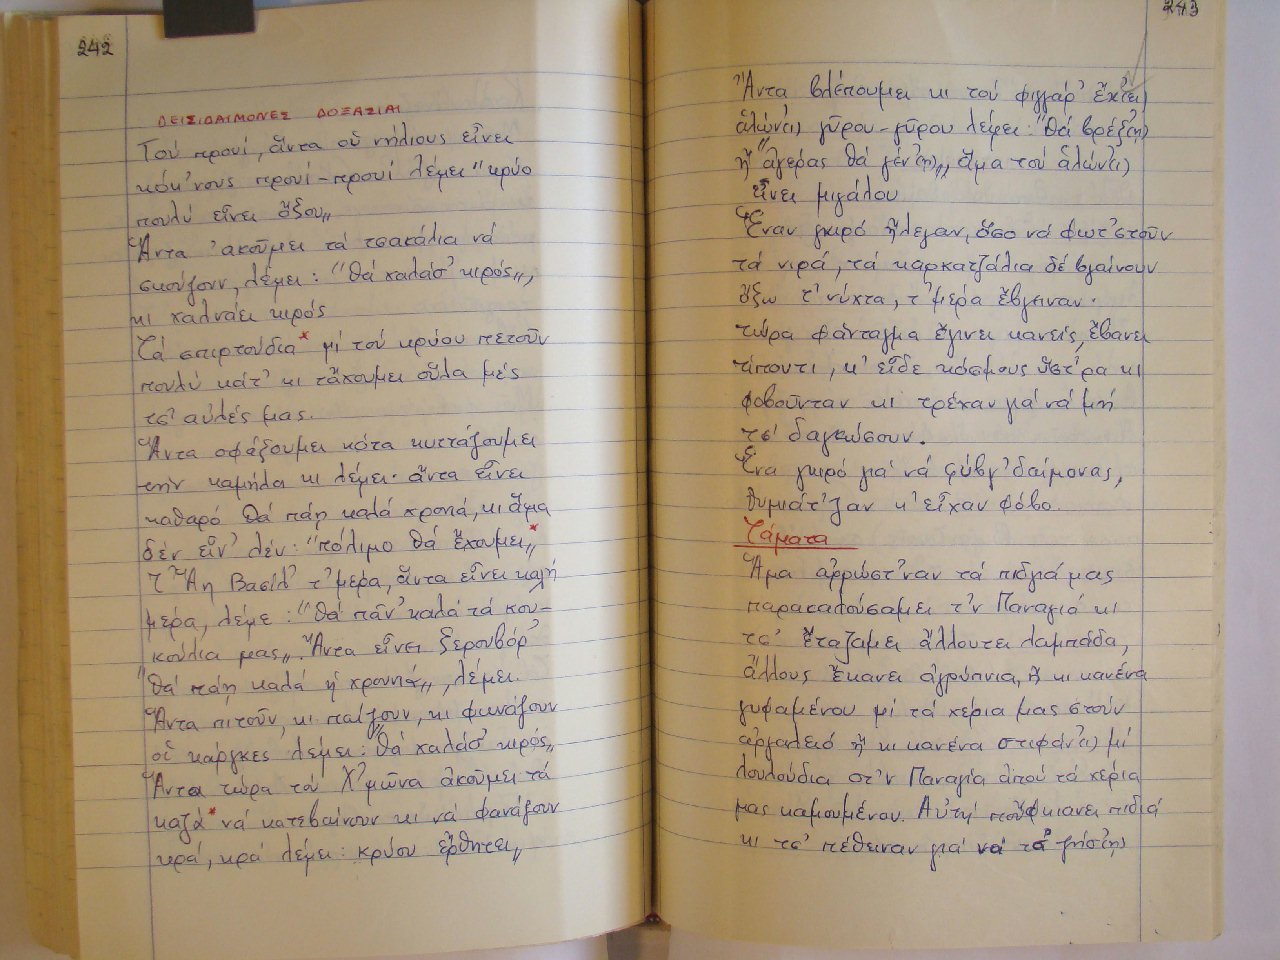 242
ΔΕΙΣΙΔΑΙΜΟΝΕΣ ΔΟΞΑΣΙΑΙ
Τού προυί, ἅντα οὗ νήλιους εἶνει
κόκ'νους προυί-προυί λέμει "κρύο
πουλύ εἶνει ὄξου„
Ἅντα 'ακοῦμει τά τσακάλια νά
σκούζουν, λέμει: "θά χαλάσ' κιρός„,
κι χαλνάει κιρός
Τά σπιρτούδια* μί τού κρύου πετοῦν
πουλύ κάτ' κι τἄχουμει οὗλα μές
τσ' αὐλές μας.
Ἅντα σφάξουμει κότα κυττάζουμει
τήν καμήλα κι λέμει· ἅντα εἶνει
καθαρό θά πάῃ καλά χρονιά, κι ἅμα
δέν εἶν' λέν: "πόλιμο θά ἔχουμει„*
Τ' Ἅη Βασίλ' τ'μέρα, ἅντα εἶνει καλή
μέρα, λέμε: "θά πᾶν' καλά τά κου-
κούλια μας„. Ἅντα εἶνει ξερουβόρ'
"θά πάῃ καλά ἡ χρουνιά„, λέμει.
Ἅντα πιτοῦν, κι παίζουν, κι φωνάζουν
οἱ κάργκες λέμει: "θά χαλάσ' κιρός„
Ἅντα τώρα τού Χ'μῶνα ἀκοῦμει τά
καζά* νά κατεβαίνουν κι νά φανάζουν
κρά, κρά λέμει: κρύου ἔρθητει„
243
Ἅντα βλέπουμει κι τού φιγγάρ' ἔχ'ει
ἁλών(ι) γῦρου-γῦρου λέμει: "θά βρέξ'(ῃ)
ἤ "ἀγέρας θά γέν'(ῃ)„, ἅμα τού ἁλών'(ι)
εἶνει μιγάλου
Ἕναν γκιρό ἤλεγαν, ὅσο νά φωτ'στοῦν
τά νιρά, τά καρκατζάλια δέ βγαίνουν
ὄξω τ' νύχτα, τ' μέρα ἔβγειναν·
τώρα φάνταγμα ἔγινει κανείς, ἔβανει
τίπουτι, κ' εἶδε κόσμους ὕστ'ρα κι
φοβοῦνταν κι τρέχαν γιά νά μή
τσ' δαγκώσουν.
Ἕνα γκιρό γιά νά φύβγ' δαίμονας,
θυμιάτ'ζαν κ' εἶχαν φόβο.
Τάματα
Ἅμα ἀρρώστ'ναν τά πιδγιά μας
παρακαλούσαμει τ'ν Παναγιά κι
τσ' ἔταζαμει ἄλλουτει λαμπάδα,
ἄλλους ἔκανει ἀγρύπνια, ἤ κι κανένα
γυφαμένου μί τά χέρια μας στούν
ἀργαλειό ἤ κι κανένα στιφάν(ι) μί
λουλούδια στ'ν Παναγία ἀπού τά χέρια
μας καμουμένου. Αὐτή ποὔφκιανει πιδιά
κι τσ' πέθειναν γιά νά τά ζήσ'(ῃ)